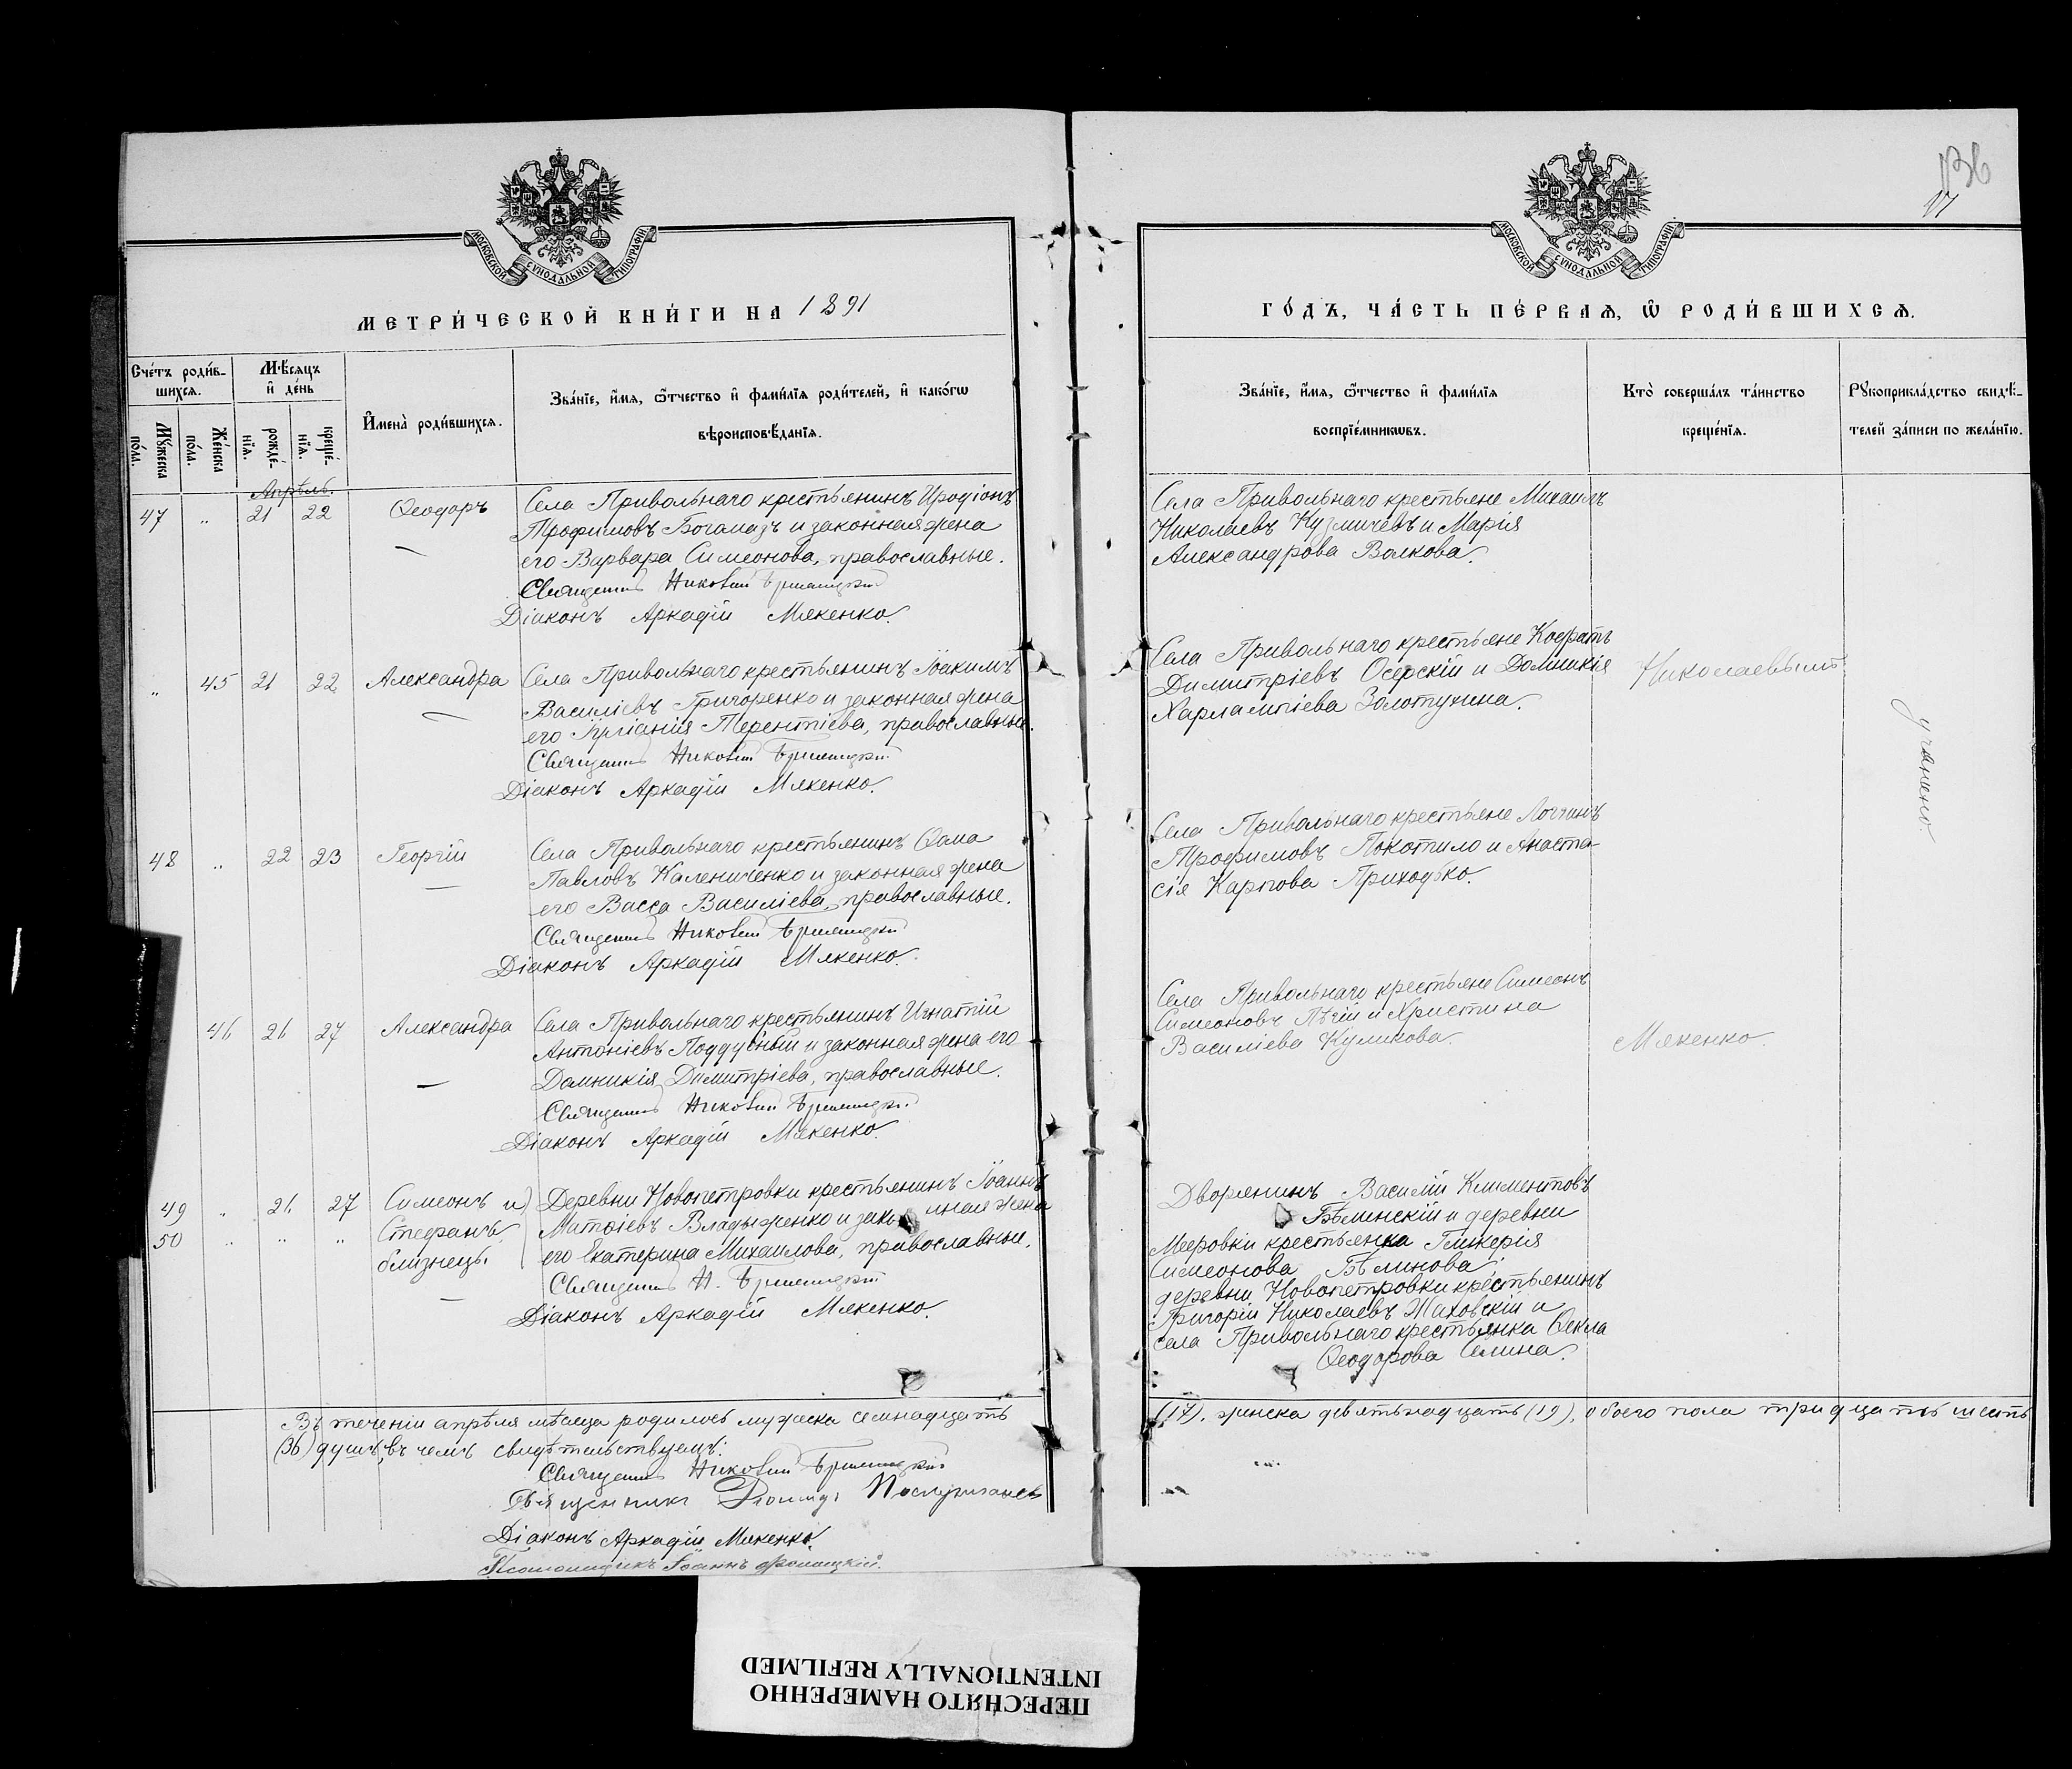 136
17
МОСКОВСКОЙ СѴНОДАЛЬНОЙ ТИПОГРАФІИ
МЕТРИ́ЧЕСКОЙ КНИ́ГИ НА 1891
Сче́тъ роди́в-
шихсѧ.
Мѣ́сѧцъ
и҆ де́нь
Мꙋ́жеска
по́ла.
Же́нска
по́ла.
рожде́-
нїѧ.
креще́-
нїѧ.
И҆мена̀ роди́вшихсѧ.
Зва́нїе, и҆́мѧ, ѻ҆́тчество и҆ фами́лїѧ роди́телей, и҆ како́гѡ
вѣроисповѣ́данїѧ.
Апрѣль.
47 " 21 22 Ѳеодоръ
Села Привольнаго крестьянинъ Иродіонъ
Трофимовъ Богамазъ и законная жена
его Варвара Симеонова, православные.
Священникъ
Діаконъ Аркадій Мякенко.
" 45 21 22 Александра
Села Привольнаго крестьянинъ Іоакимъ
Василіевъ Григоренко и законная жена
его Іуліанія Терентіева, православные.
Священникъ
Діаконъ Аркадій Мякенко.
48 " 22 23 Георгій
Села Привольнаго крестьянинъ Ѳома
Павловъ Калениченко и законная жена
его Васса Василіева, православные.
Священникъ
Діаконъ Аркадій Мякенко.
46 26 27 Александра
Села Привольнаго крестьянинъ Игнатій
Антоніевъ Поддубный и законная жена его
Домникія Димитріева, православные.
Священникъ
Діаконъ Аркадій Мякенко.
49 " 26 27 Симеонъ и
50 " " " Стефанъ
близнецы.
Деревни Новопетровки крестьянинъ Іоаннъ
Матѳіевъ Владыженко и зако нная жена
его Екатерина Михаилова, православные.
Священникъ Н.
Діаконъ Аркадій Мякенко.
Въ теченіи апрѣля мѣсяца родилось мужеска семнадцать
(36) душъ, въ чемъ свидѣтельствуемъ:
Священникъ
Священникъ
Діаконъ Аркадій Мякенко.
Псаломщикъ Іоаннъ
МОСКОВСКОЙ СѴНОДАЛЬНОЙ ТИПОГРАФІИ
ГО́ДЪ, ЧА́СТЬ ПЕ́РВАѦ, Ѡ҆ РОДИ́ВШИХСѦ.
Зва́нїе, и҆́мѧ, ѻ҆́тчество и҆ фами́лїѧ
воспрїе́мникѡвъ.
Кто̀ соверша́лъ та́инство
креще́нїѧ.
Рꙋкоприкла́дство свидѣ́-
телей за́писи по жела́нїю.
Села Привольнаго крестьяне Михаилъ
Николаевъ Кузмичевъ и Марія
Александрова Волкова.
Села Привольнаго крестьяне Кодратъ
Димитріевъ Осерскій и Домникія
Харлампіева Золотухина.
Николаевымъ
учинено.
Села Привольнаго крестьяне Логгинъ
Трофимовъ Покотило и Анаста-
сія Карпова Приходько.
Села Привольнаго крестьяне Симеонъ
Симеоновъ Пѣгій и Христина
Василіева Куликова.
Мякенко.
Дворянинъ Василій Климентовъ
Бѣлинскій и деревни
Мееровки крестьянка Гликерія
Симеонова Бѣлинова;
деревни Новопетровки крестьянинъ
Григорій Николаевъ Жаховскій и
села Привольнаго крестьянка Ѳекла
Ѳеодорова Сѣлина.
(17), женска девятьнадцать (19), обоего пола тридцать шесть
ПЕРЕСНЯТО НАМЕРЕННО
INTENTIONALLY REFILMED